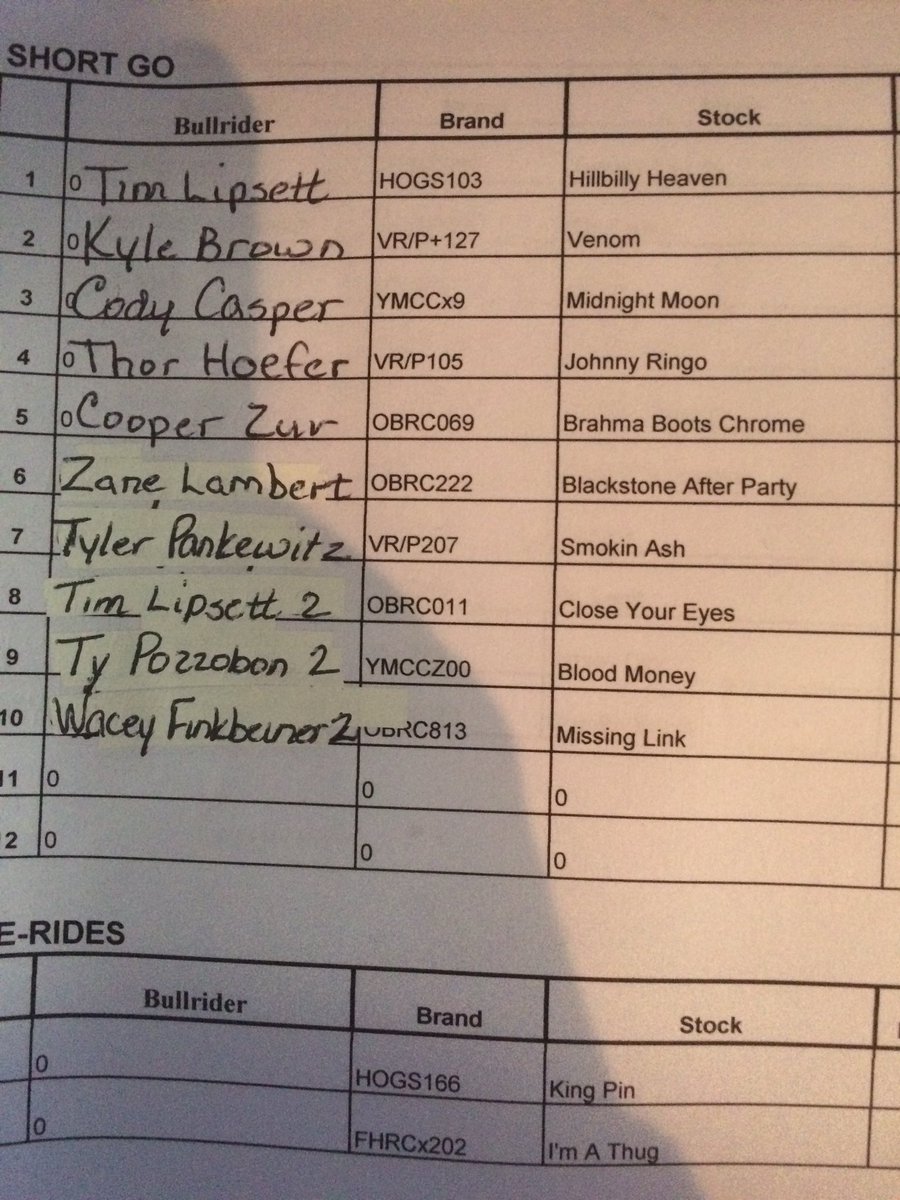 SHORT GO
Bullrider Brand Stock
1 0 Tim Lipsett HOGS103 Hillbilly Heaven
2 0 Kyle Brown VR/P+127 Venom
3 0 Cody Casper YMCCx9 Midnight Moon
4 0 Thor Hoefer VR/P105 Johnny Ringo
5 0 Cooper Zur OBRC069 Brahma Boots Chrome
6 Zane Lambert OBRC222 Blackstone After Party
7 Tyler Pankewitz VR/P207 Smokin Ash
8 Tim Lipsett 2 OBRC011 Close Your Eyes
9 Ty Pozzobon 2 YMCCZ00 Blood Money
10 Wacey Finkbeiner 2 OBRC813 Missing Link
11 0 0 0
12 0 0 0
E-RIDES
Bullrider Brand Stock
0 HOGS166 King Pin
0 FHRCx202 I'm A Thug